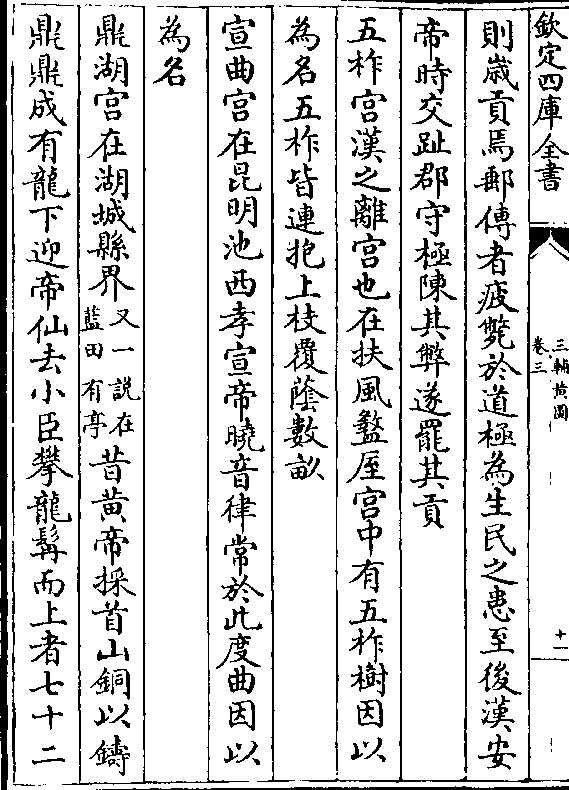 欽定四庫全書
三輔黄圖
卷三
十一
則歳貢焉郵傳者疲斃於道極為生民之患至後漢安
帝時交趾郡守極陳其弊遂罷其貢
五柞宮漢之離宮也在扶風盩厔宮中有五柞樹因以
為名五柞皆連抱上枝覆蔭數畝
宣曲宮在昆明池西孝宣帝曉音律常於此度曲因以
為名
鼎湖宮在湖城縣界又一說在藍田有亭昔黄帝採首山銅以鑄
鼎鼎成有龍下迎帝仙去小臣攀龍髯而上者七十二